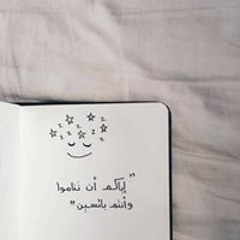 "إياكم أن تناموا
وأنتم بائسين"